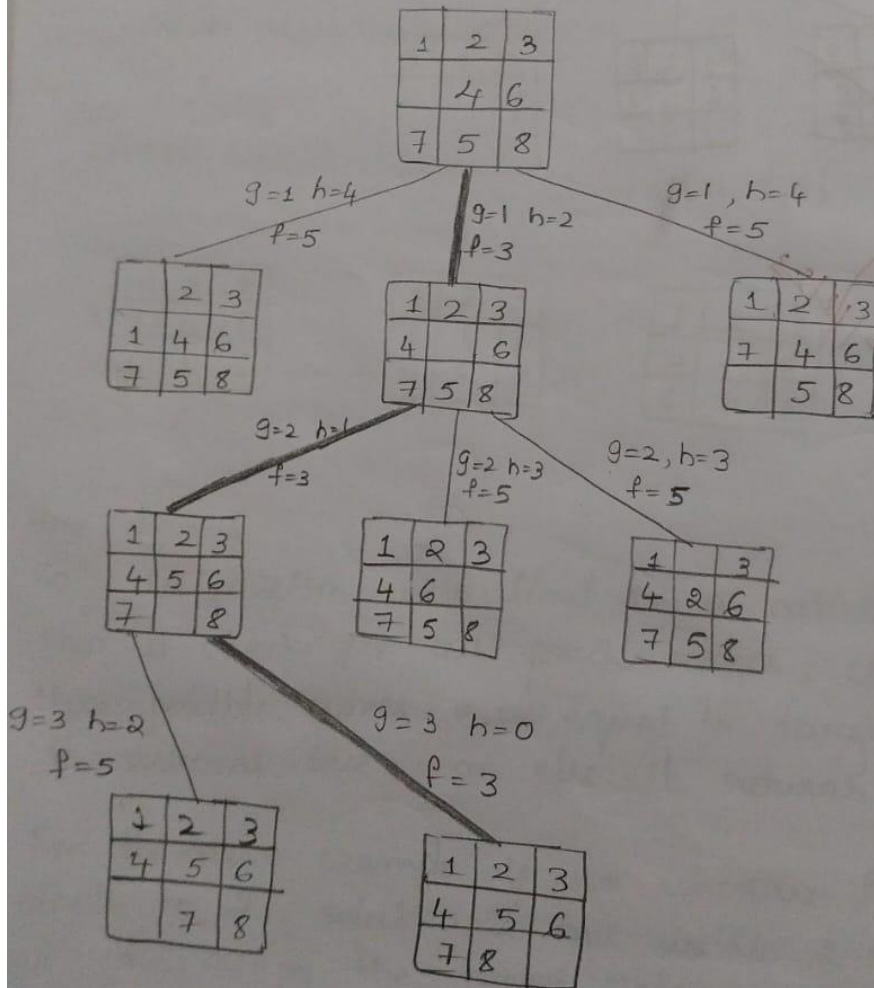 1 2 3
4 6
7 5 8
g=1 h=4
f=5
g=1 h=2
f=3
g=1 , h=4
f=5
2 3
1 4 6
7 5 8
1 2 3
4 6
7 5 8
1 2 3
7 4 6
5 8
g=2 h=1
f=3
g=2 h=3
f=5
g=2, h=3
f=5
1 2 3
4 5 6
7 8
1 2 3
4 6
7 5 8
1 3
4 2 6
7 5 8
g=3 h=2
f=5
g=3 h=0
f=3
1 2 3
4 5 6
7 8
1 2 3
4 5 6
7 8